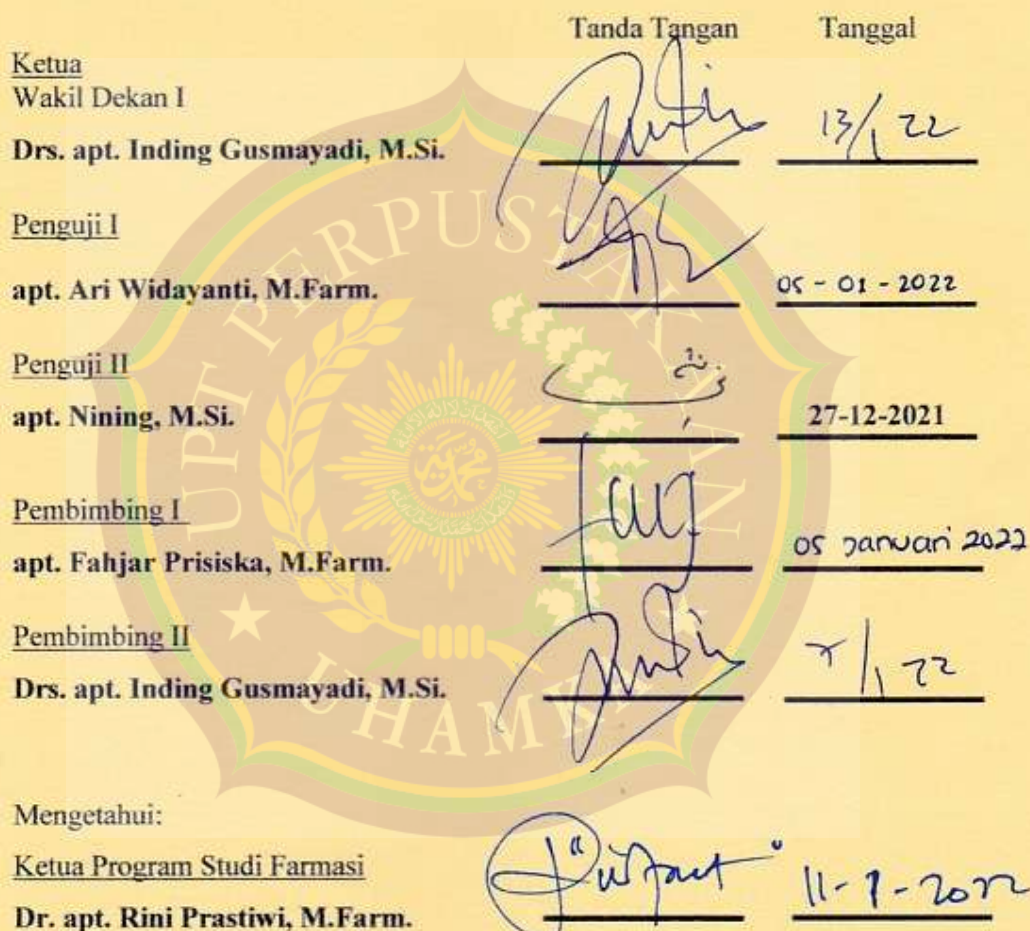 Tanda Tangan Tanggal
Ketua
Wakil Dekan I
Drs. apt. Inding Gusmayadi, M.Si. 13/1 22
Penguji I
apt. Ari Widayanti, M.Farm. 05 - 01 - 2022
Penguji II
apt. Nining, M.Si. 27-12-2021
Pembimbing I
apt. Fahjar Prisiska, M.Farm. 05 Januari 2022
Pembimbing II
Drs. apt. Inding Gusmayadi, M.Si. /1 22
Mengetahui:
Ketua Program Studi Farmasi
Dr. apt. Rini Prastiwi, M.Farm. 11-1-2022
UPT PERPUSTAKAAN
UHAMKA